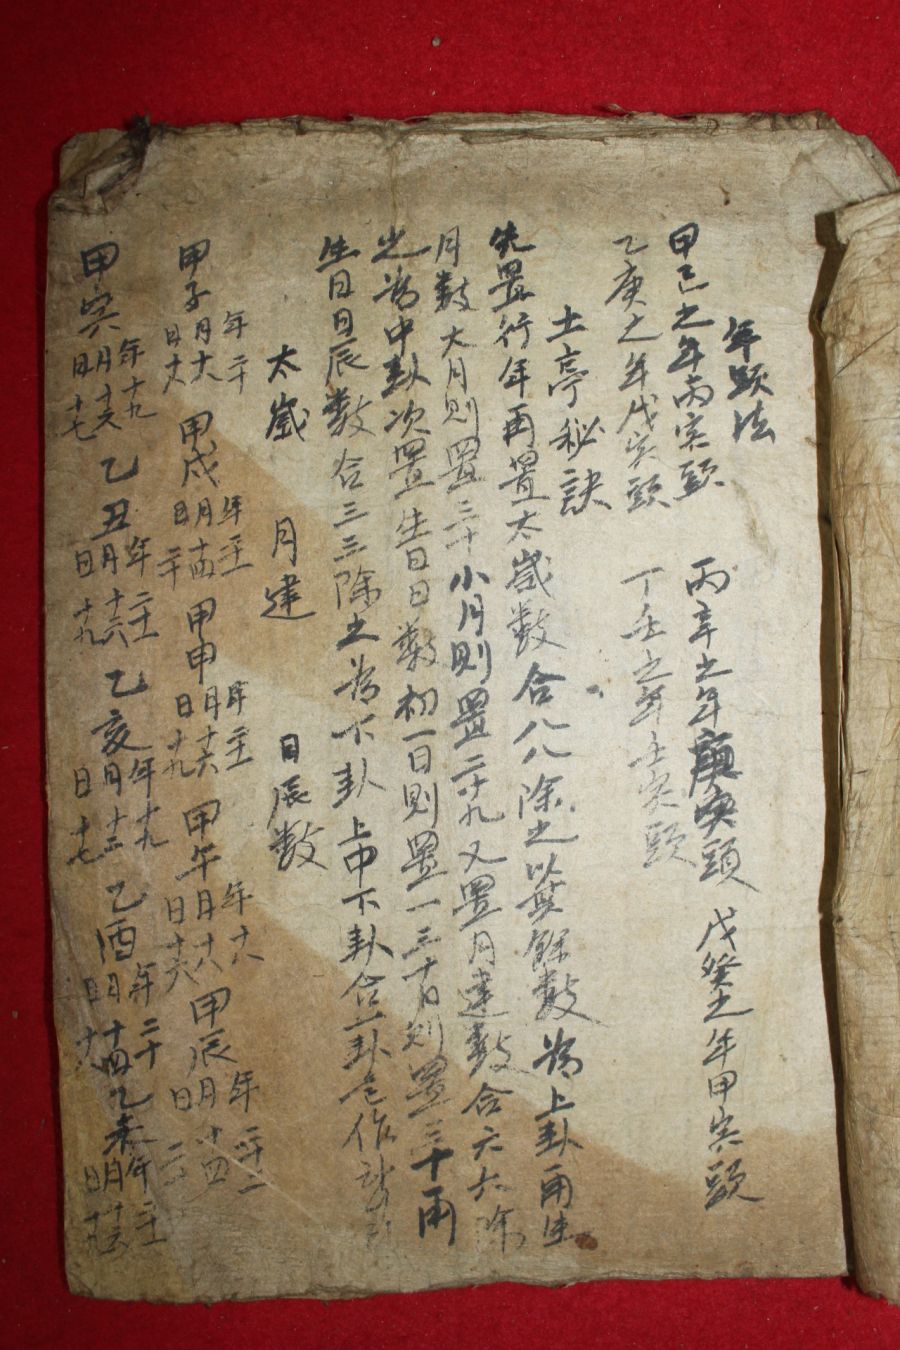 年頭法
甲己之年丙寅頭 丙辛之年庚寅頭 戊癸之年甲寅頭
乙庚之年戊寅頭 丁壬之年壬寅頭
土亭秘訣
先置行年再置太歲數合八八除之以其餘數為上卦再生
月數大月則置三十小月則置二十九又置月建數合六六除
之為中卦次置生日日數初一日則置一三十日則置三十再
生日日辰數合三三除之為下卦上中下卦合一卦名作
太歲 月建 日辰數
甲子 年二十 月十八 日十八 甲戌 年二十二 月十四 日二十 甲申 年二十二 月十六 日十九 甲午 年十八 月十八 日十六 甲辰 年二十二 月十四 日二十
甲寅 年十九 月十六 日十七 乙丑 年二十二 月十六 日十九 乙亥 年十九 月十三 日十七 乙酉 年二十 月十四 日十八 乙未 年二十二 月十六